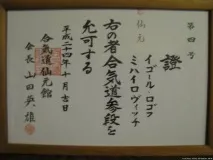 第四号
證
イゴール・ロゴフ
ミハイロヴィッチ
右の者合気道参段を
允可する
平成二十四年十月吉日
合気道仙元館
会長 山田英雄